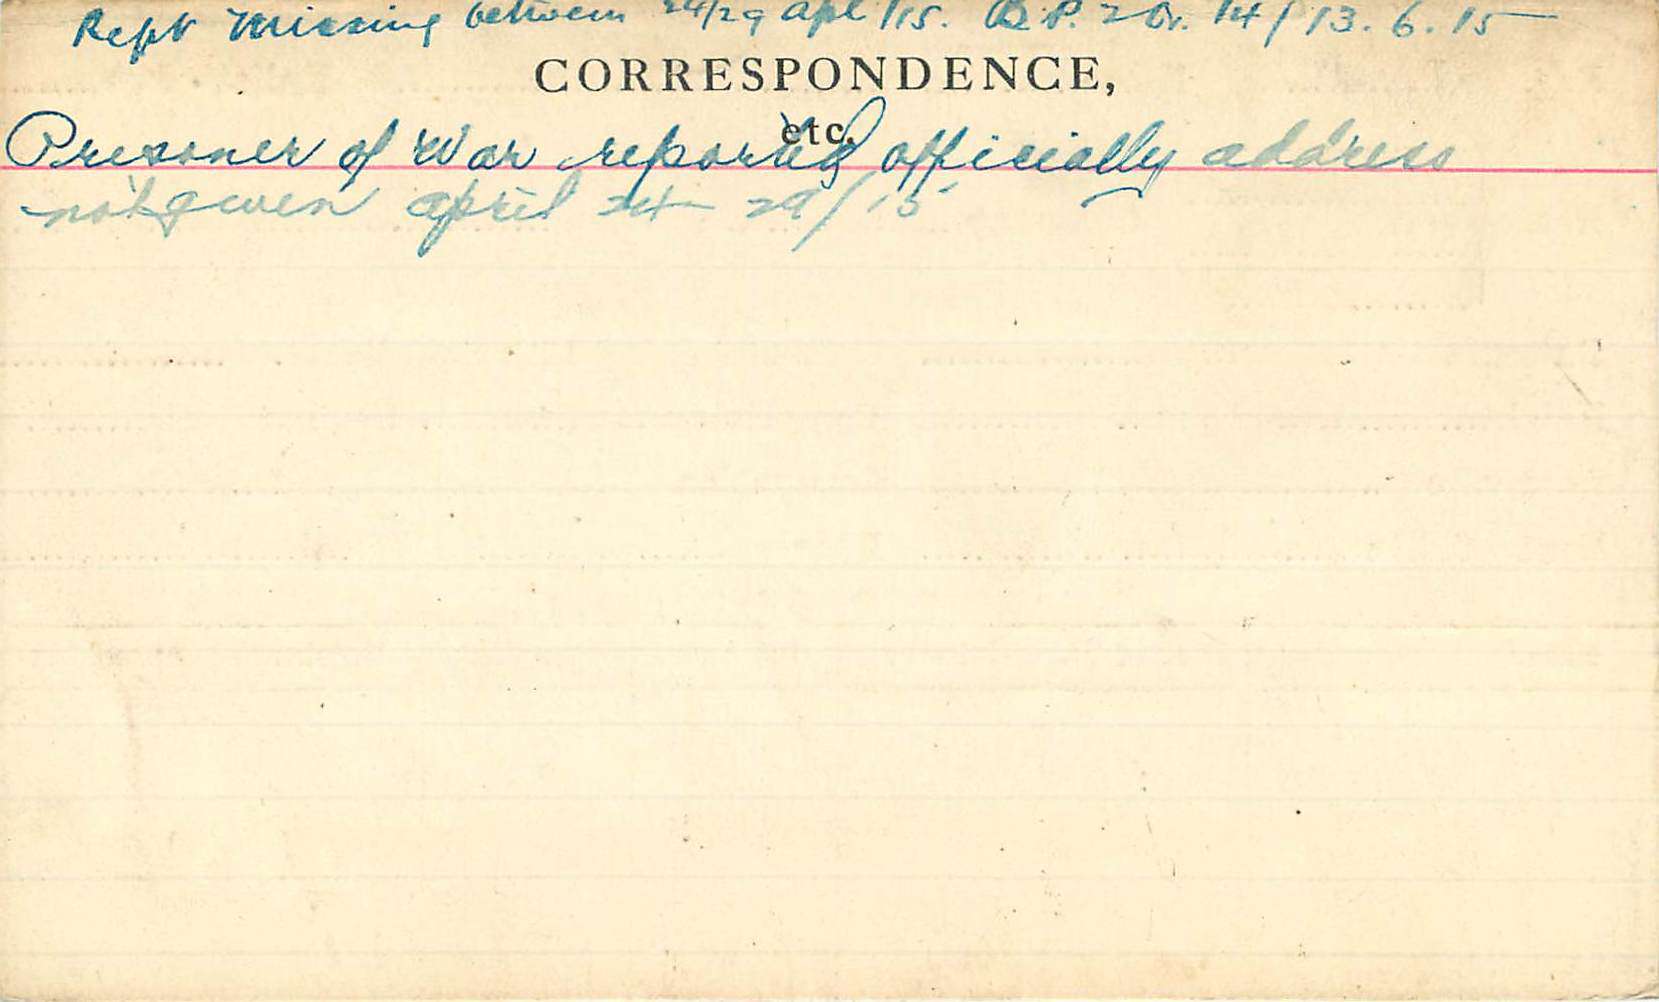 Rept Missing between 24/29 Apl /15. B.P. 2 Dr. 14/13.6.15
CORRESPONDENCE,
etc.
Prisoner of War reported officially address
not given April 24 29/15